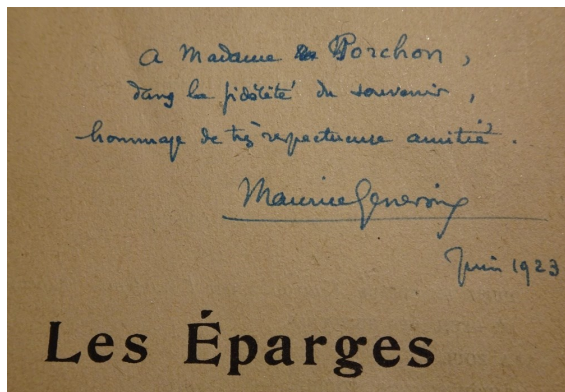 A Madame Porchon,
dans la fidélité du souvenir,
hommage de très respectueuse amitié.
Maurice Genevoix
Juin 1923
Les Éparges